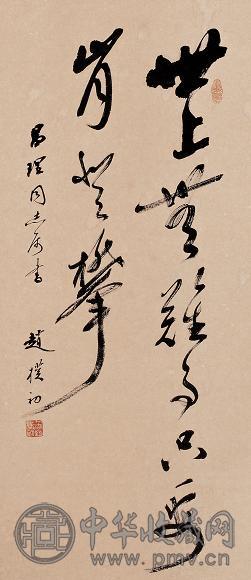 世上無難事只要
肯登攀
昌理同志属書
趙樸初
中华收藏网
www.pmv.cn